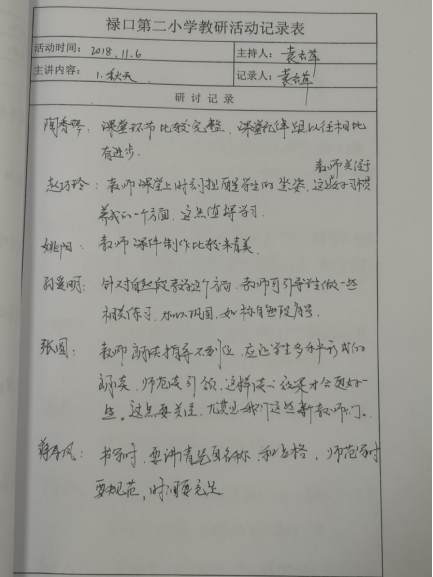 禄口第二小学教研活动记录表
活动时间: 2018.11.6 主持人:
主讲内容: 1.秋天 记录人:
研讨记录
陶香琴: 课堂环节比较完整、课堂纪律跟以往相比
有进步.
教师关注于
赵巧玲: 教师课堂上时刻提醒学生的坐姿, 这是好习惯
养成的一个方面, 这点值得学习.
姚阳: 教师课件制作比较精美.
孙爱明: 针对自然段教学这个方面, 教师可引导学生做一些
相关练习, 加以巩固, 如标自然段序号.
张圆: 教师朗读指导不到位, 应让学生多种形式的
朗读, 师范读引领, 这样读的效果才会更好一
些. 这点要关注, 尤其是我们这些新教师们.
书写时, 要讲清笔画名称和占格, 师范写时
要规范, 时间要充足